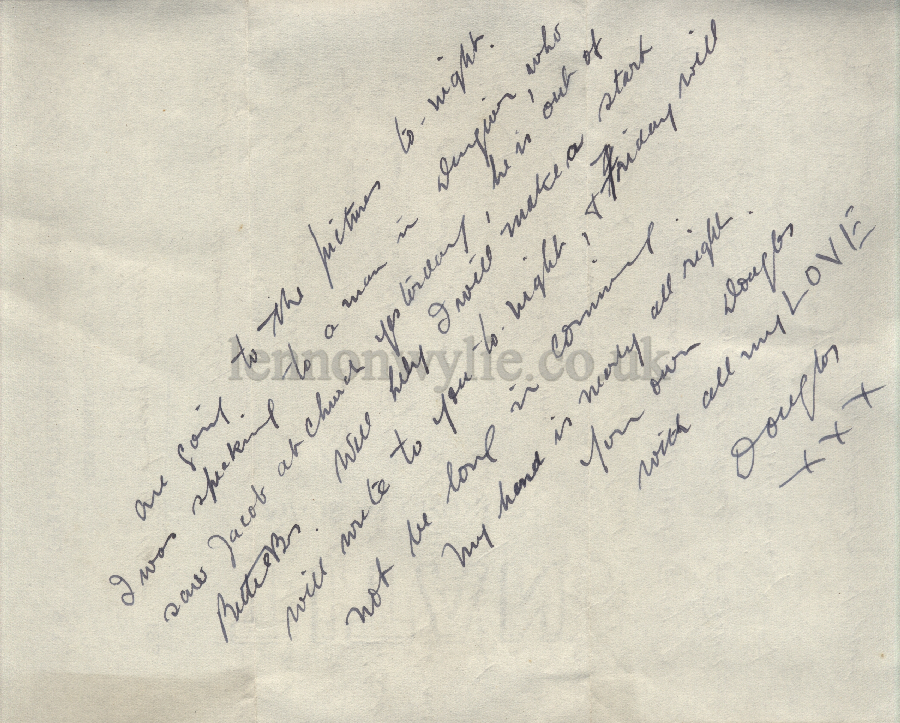 are going to the pictures to-night.
I was speaking to a man in Dungiven, who
saw Jacob at church yesterday, he is out of
Butter Bs. Will hely I will make a start
will write to you to-night, & Friday will
not be long in coming.
My hand is nearly all right.
Your own Douglas
with all my LOVE
Douglas
x x x
lennonwylie.co.uk